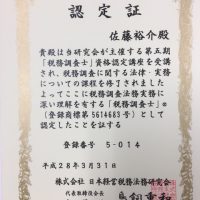 認定証
佐藤裕介殿
貴殿は当研究会が主催する第五期
「税務調査士」資格認定講座を受講
され、税務調査に関する法律・実務
についての課程を修了されました
よってここに税務調査法務実務に
深い理解を有する「税務調査士」®
(登録商標第5614683号)として
認定したことを証する
登録番号 5-014
平成28年3月31日
株式会社 日本経営税務法務研究会
代表取締役会長